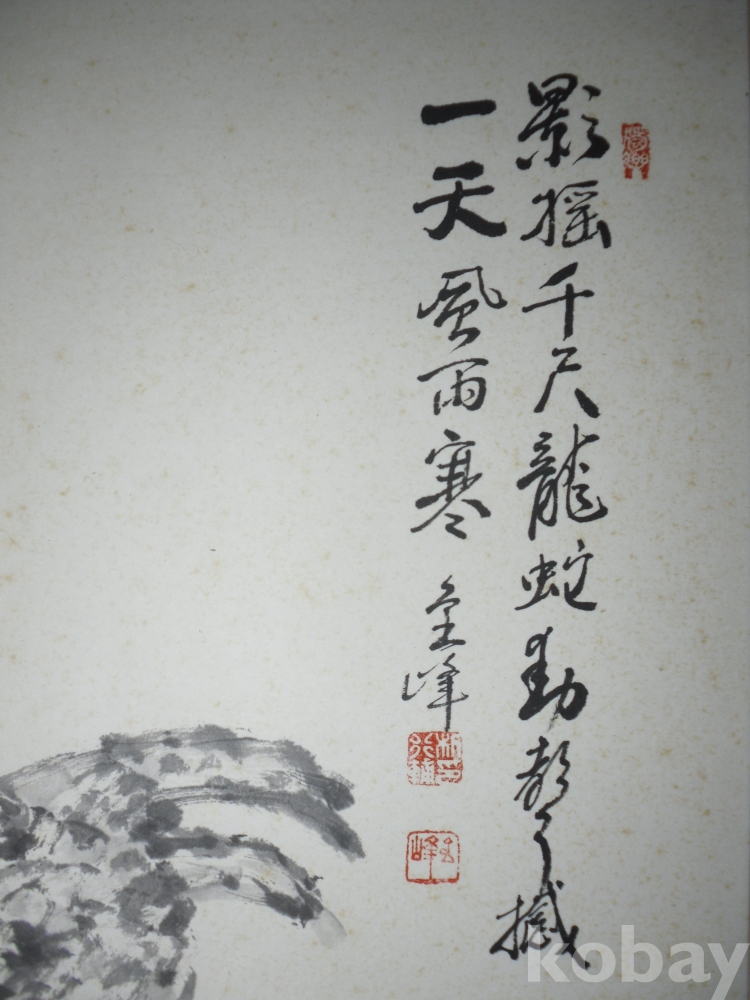 影搖千尺龍蛇動聲撼
一天風雨寒
金峰
kobay